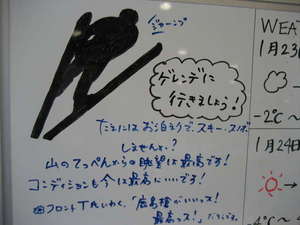 ジャーンプ
WEA
1月23
ゲレンデに
行きましょう！
-2℃ ~
たまにはお泊まりで、スキー・スノボ
しませんか？
山のてっぺんからの眺望は最高です！
1月24日
コンディションも今は最高にいいです！
フロントTRいわく、「広島種がいいッス！
最高ッス！」だそうです。
-4℃ ~